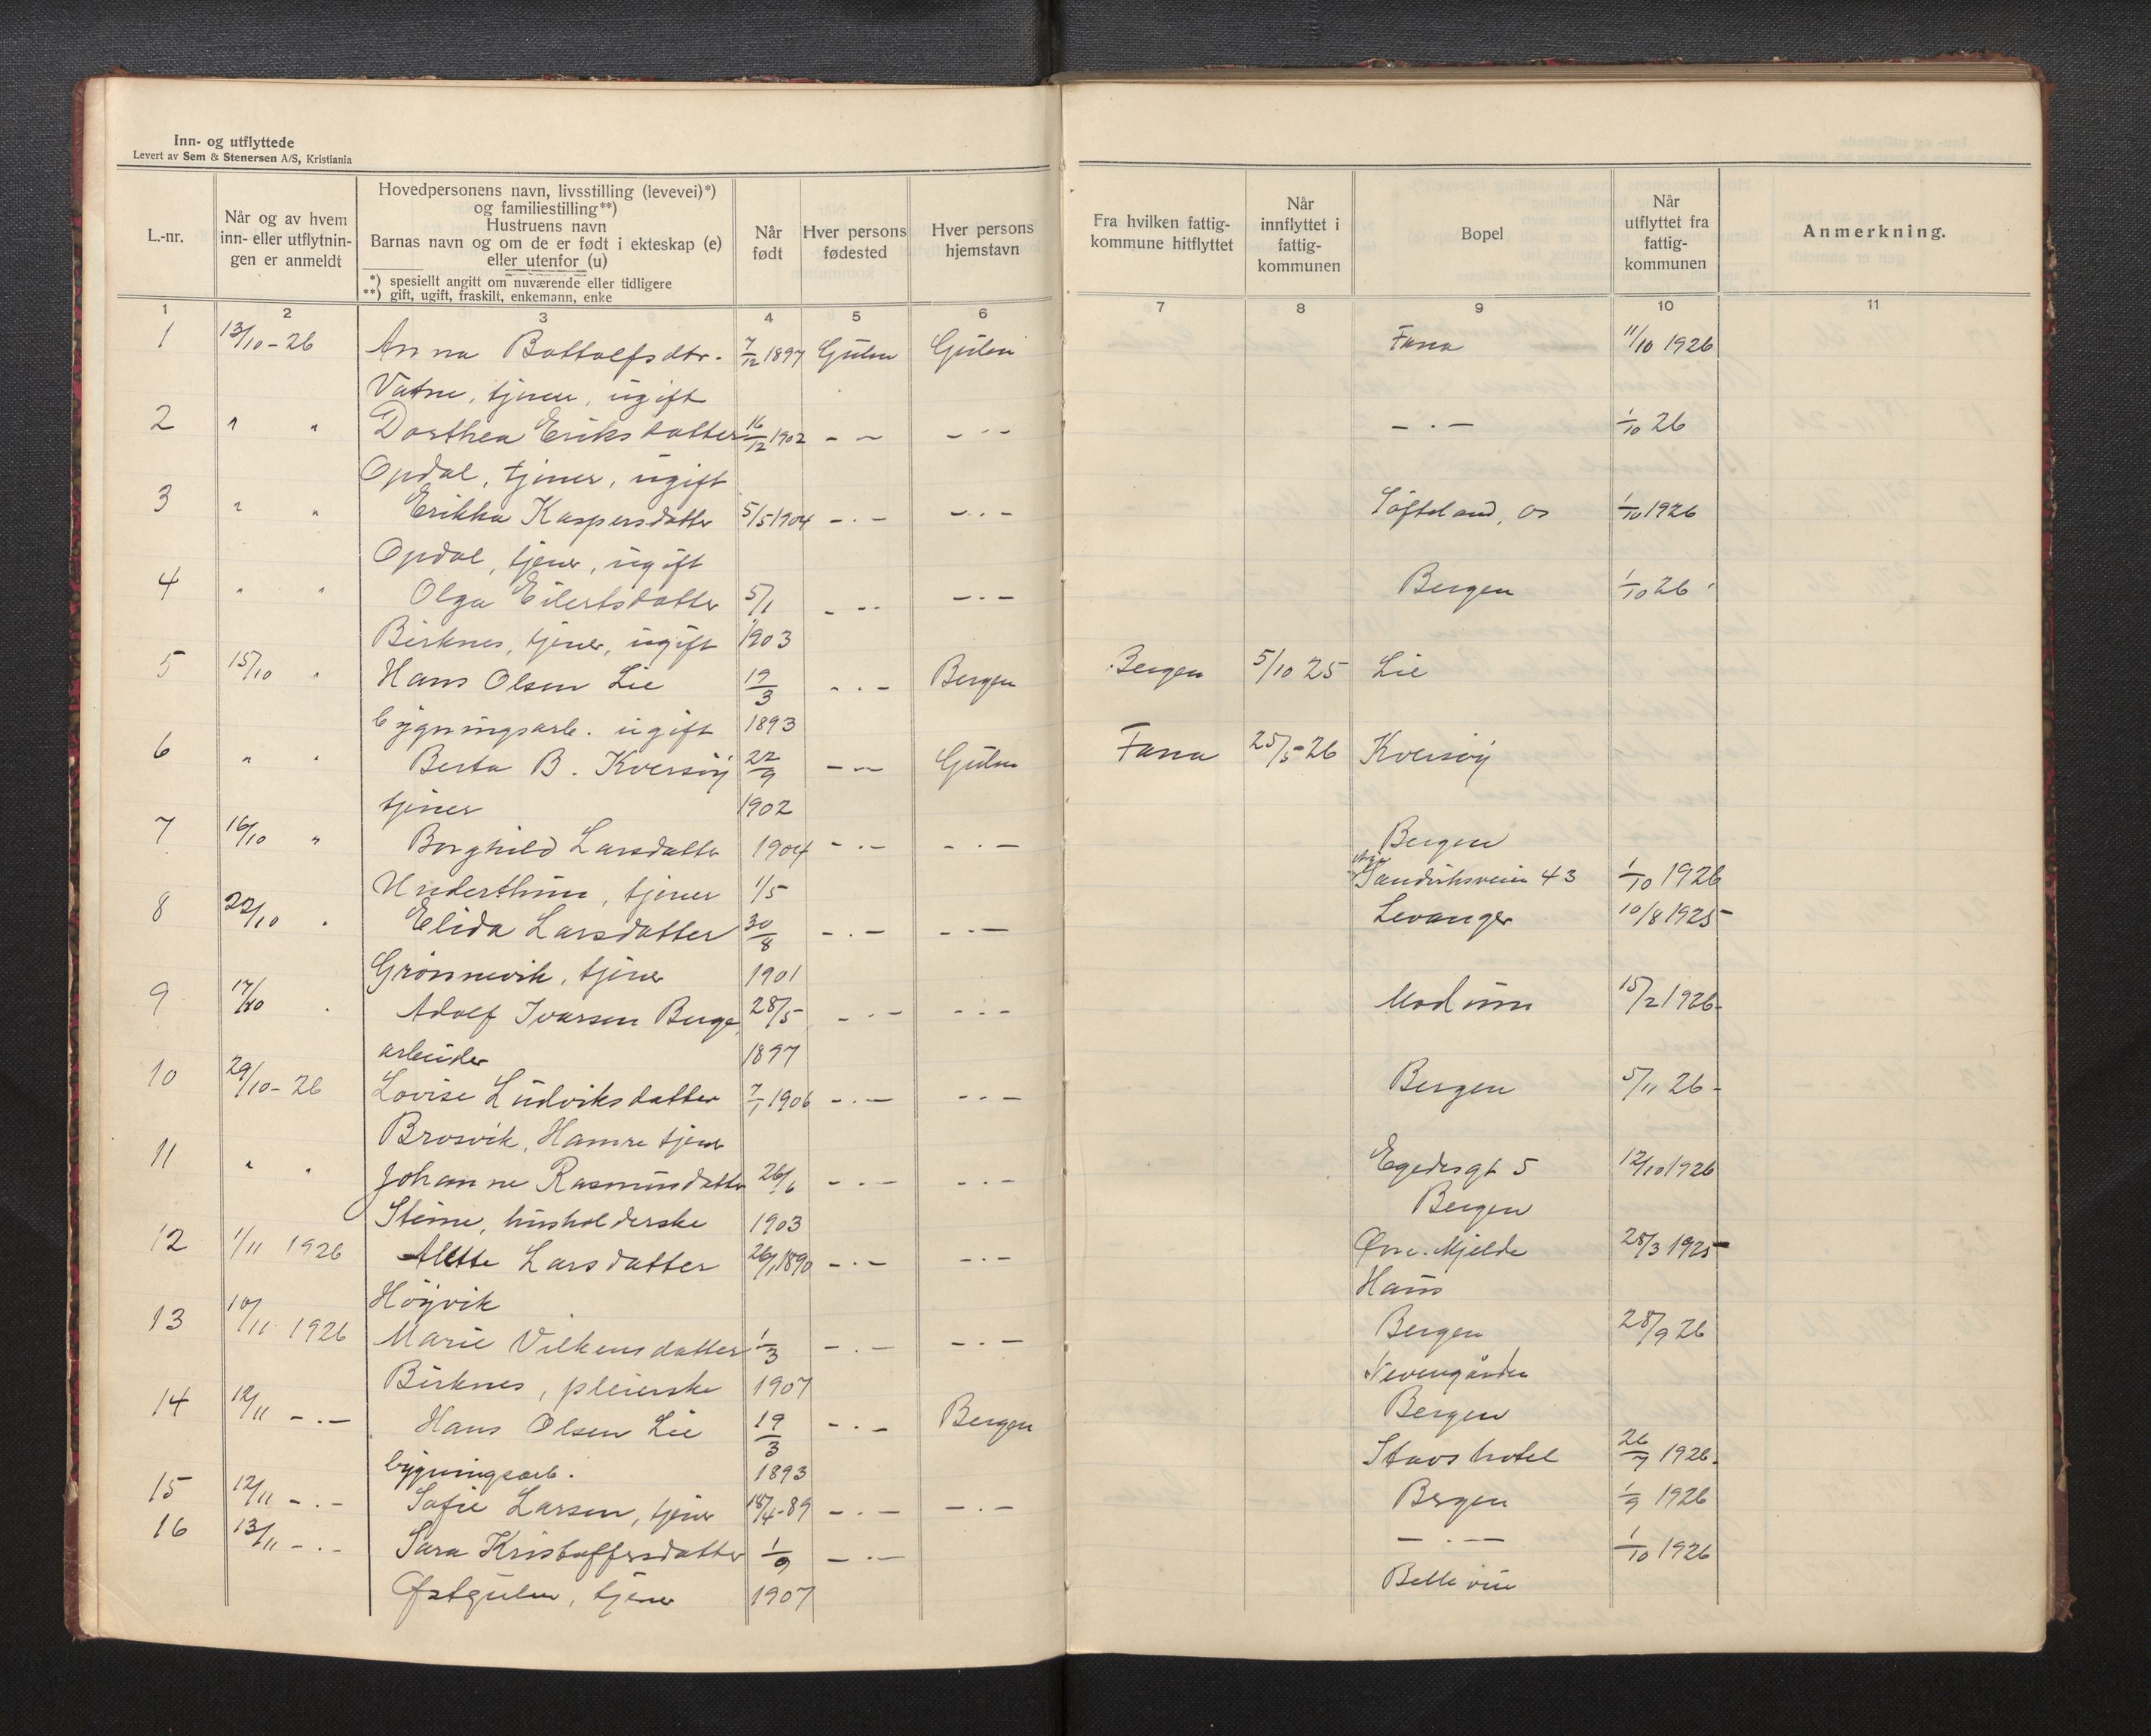 Inn- og utflyttede
Levert av Sem & Stenersen A/S, Kristiania
L.-nr.
Når og av hvem inn- eller utflytnin- gen er anmeldt
Hovedpersonens navn, livsstilling (levevei)*)
og familiestilling**)
Hustruens navn
Barnas navn og om de er født i ekteskap (e)
eller utenfor (u)
*) spesiellt angitt om nuværende eller tidligere
**) gift, ugift, fraskilt, enkemann, enke
Når født
Hver persons fødested
Hver persons hjemstavn
Fra hvilken fattig- kommune hitflyttet
Når innflyttet i fattig- kommunen
Bopel
Når utflyttet fra fattig- kommunen
Anmerkning.
1 2 3 4 5 6 7 8 9 10 11
1 13/10-26 Anna Bottolfsdtr. 7/12 1897 Gulen Gulen Fana 11/10 1926
Vatne, tjener, ugift
2 " " Dorthea Eriksdatter 16/12 1902 - - - - - - . - 1/10 26
Opdal, tjener, ugift
3 " " Erikka Kaspersdatter 5/5 1904 - . - - . - Söfteland, Os 1/10 1926
Opdal, tjener, ugift
4 " " Olga Eilertsdatter 5/1 - - - - . - Bergen 1/10 26
Birknes, tjener, ugift 1903
5 15/10 " Hans Olsen Lie 19/3 - . - Bergen Bergen 5/10 25 Lie
bygningsarb. ugift 1893
6 " " Berta B. Kversöy 22/9 - - Gulen Fana 25/5-26 Kversöy
tjener 1902
7 16/10 " Borghild Larsdatter 1904 - . - - . - Bergen
Underthun, tjener 1/5 Sandviksveien 43 1/10 1926
8 22/10 " Elida Larsdatter 30/8 - . - - . - Levanger 10/8 1925
Grönnevik, tjener 1901
9 17/10 " Adolf Ivarsen Berge, 28/5 - . - - . - Modum 15/2 1926
arbeider 1897
10 29/10-26 Lovise Ludviksdatter 7/1 1906 - . - - . - Bergen 5/11 26
Brosvik, Hamre tjener
11 " " Johanne Rasmusdatter 26/6 - . - - . - Egedesgt 5 12/10 1926
Steine, husholderske 1903 Bergen
12 1/11 1926 Alette Larsdatter 26/1 1890 - . - - . - Øvre. Mjelde 28/3 1925
Höyvik Haus
13 10/11 1926 Marie Vilkensdatter 1/3 - . - - . - Bergen 28/9 26
Birknes, pleierske 1907 Nevengården
14 12/11 - . - Hans Olsen Lie 19/3 - . - Bergen Bergen
bygningsarb. 1893 Stavs hotel 26/7 1926
15 12/11 - . - Sofie Larsen, tjener 18/4-89 - . - - . - Bergen 1/9 1926
16 13/11 - . - Sara Kristoffersdatter 1/9 - . - - . - 1/10 1926
Østgulen, tjener 1907 Bellevue